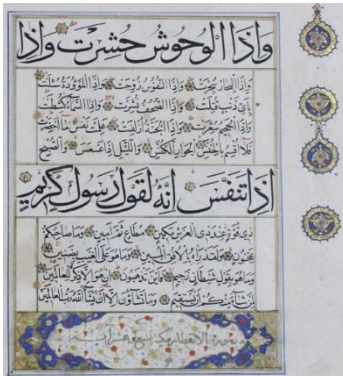 وَإِذَا الْوُحُوشُ حُشِرَتْ وَإِذَا
الْبِحَارُ سُجِّرَتْ وَإِذَا النُّفُوسُ زُوِّجَتْ وَإِذَا الْمَوْءُودَةُ سُئِلَتْ
بِأَيِّ ذَنْبٍ قُتِلَتْ وَإِذَا الصُّحُفُ نُشِرَتْ وَإِذَا السَّمَاءُ كُشِطَتْ
وَإِذَا الْجَحِيمُ سُعِّرَتْ وَإِذَا الْجَنَّةُ أُزْلِفَتْ عَلِمَتْ نَفْسٌ مَا أَحْضَرَتْ
فَلَا أُقْسِمُ بِالْخُنَّسِ الْجَوَارِ الْكُنَّسِ وَاللَّيْلِ إِذَا عَسْعَسَ وَالصُّبْحِ
إِذَا تَنَفَّسَ إِنَّهُ لَقَوْلُ رَسُولٍ كَرِيمٍ
ذِي قُوَّةٍ عِنْدَ ذِي الْعَرْشِ مَكِينٍ مُطَاعٍ ثَمَّ أَمِينٍ وَمَا صَاحِبُكُمْ
بِمَجْنُونٍ وَلَقَدْ رَآهُ بِالْأُفُقِ الْمُبِينِ وَمَا هُوَ عَلَى الْغَيْبِ بِضَنِينٍ
وَمَا هُوَ بِقَوْلِ شَيْطَانٍ رَجِيمٍ فَأَيْنَ تَذْهَبُونَ إِنْ هُوَ إِلَّا ذِكْرٌ لِلْعَالَمِينَ
لِمَنْ شَاءَ مِنْكُمْ أَنْ يَسْتَقِيمَ وَمَا تَشَاؤُنَ إِلَّا أَنْ يَشَاءَ اللَّهُ رَبُّ الْعَالَمِينَ
سورة الانفطار